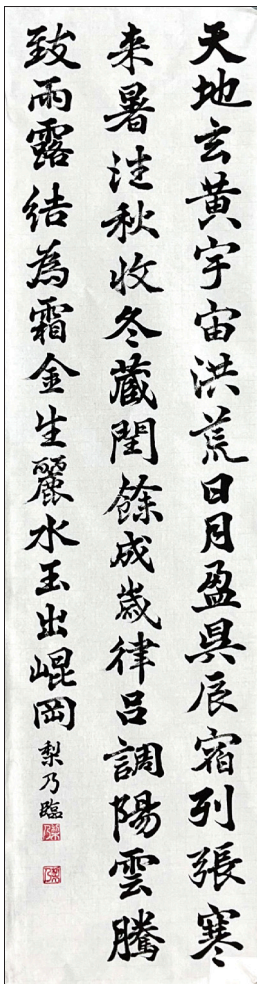 天地玄黃宇宙洪荒日月盈昃辰宿列張寒
来暑往秋收冬蔵閏餘成歲律呂調陽雲騰
致雨露結為霜金生麗水玉出崐岡
梨乃臨